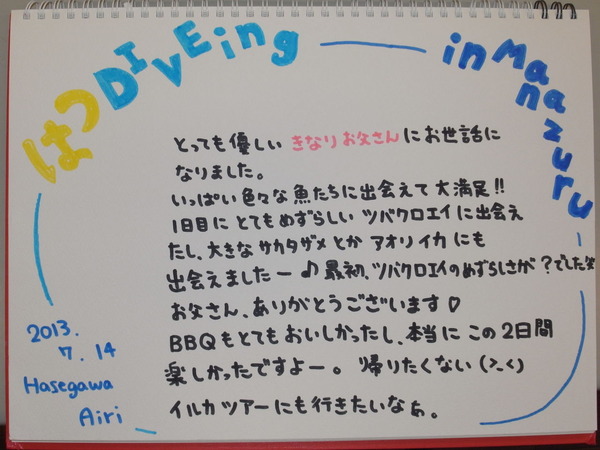 はつDIVEing
in Manazuru
とっても優しい きなりお父さんにお世話に
なりました。
いっぱい色々な魚たちに出会えて大満足!!
1日目にとてもめずらしいツバクロエイに出会え
たし、大きなサカタザメとかアオリイカにも
出会えましたー♪最初、ツバクロエイのめずらしさが?でした笑
お父さん、ありがとうございます♡
BBQもとてもおいしかったし、本当にこの2日間
楽しかったですよー。帰りたくない(>_<)
イルカツアーにも行きたいなぁ。
2013.
7.14
Hasegawa
Airi